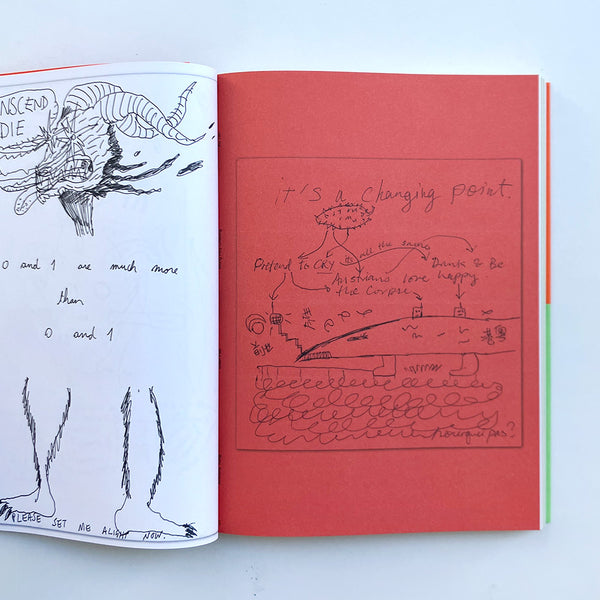 NSCEND
DIE
0 and 1 are much more
than
0 and 1
PLEASE SET ME ALIGHT NOW.
it's a changing point.
it's all the same
Pretend to CRY
Austrians love
the Corpse
Drink & Be
happy
Pourquoi pas?